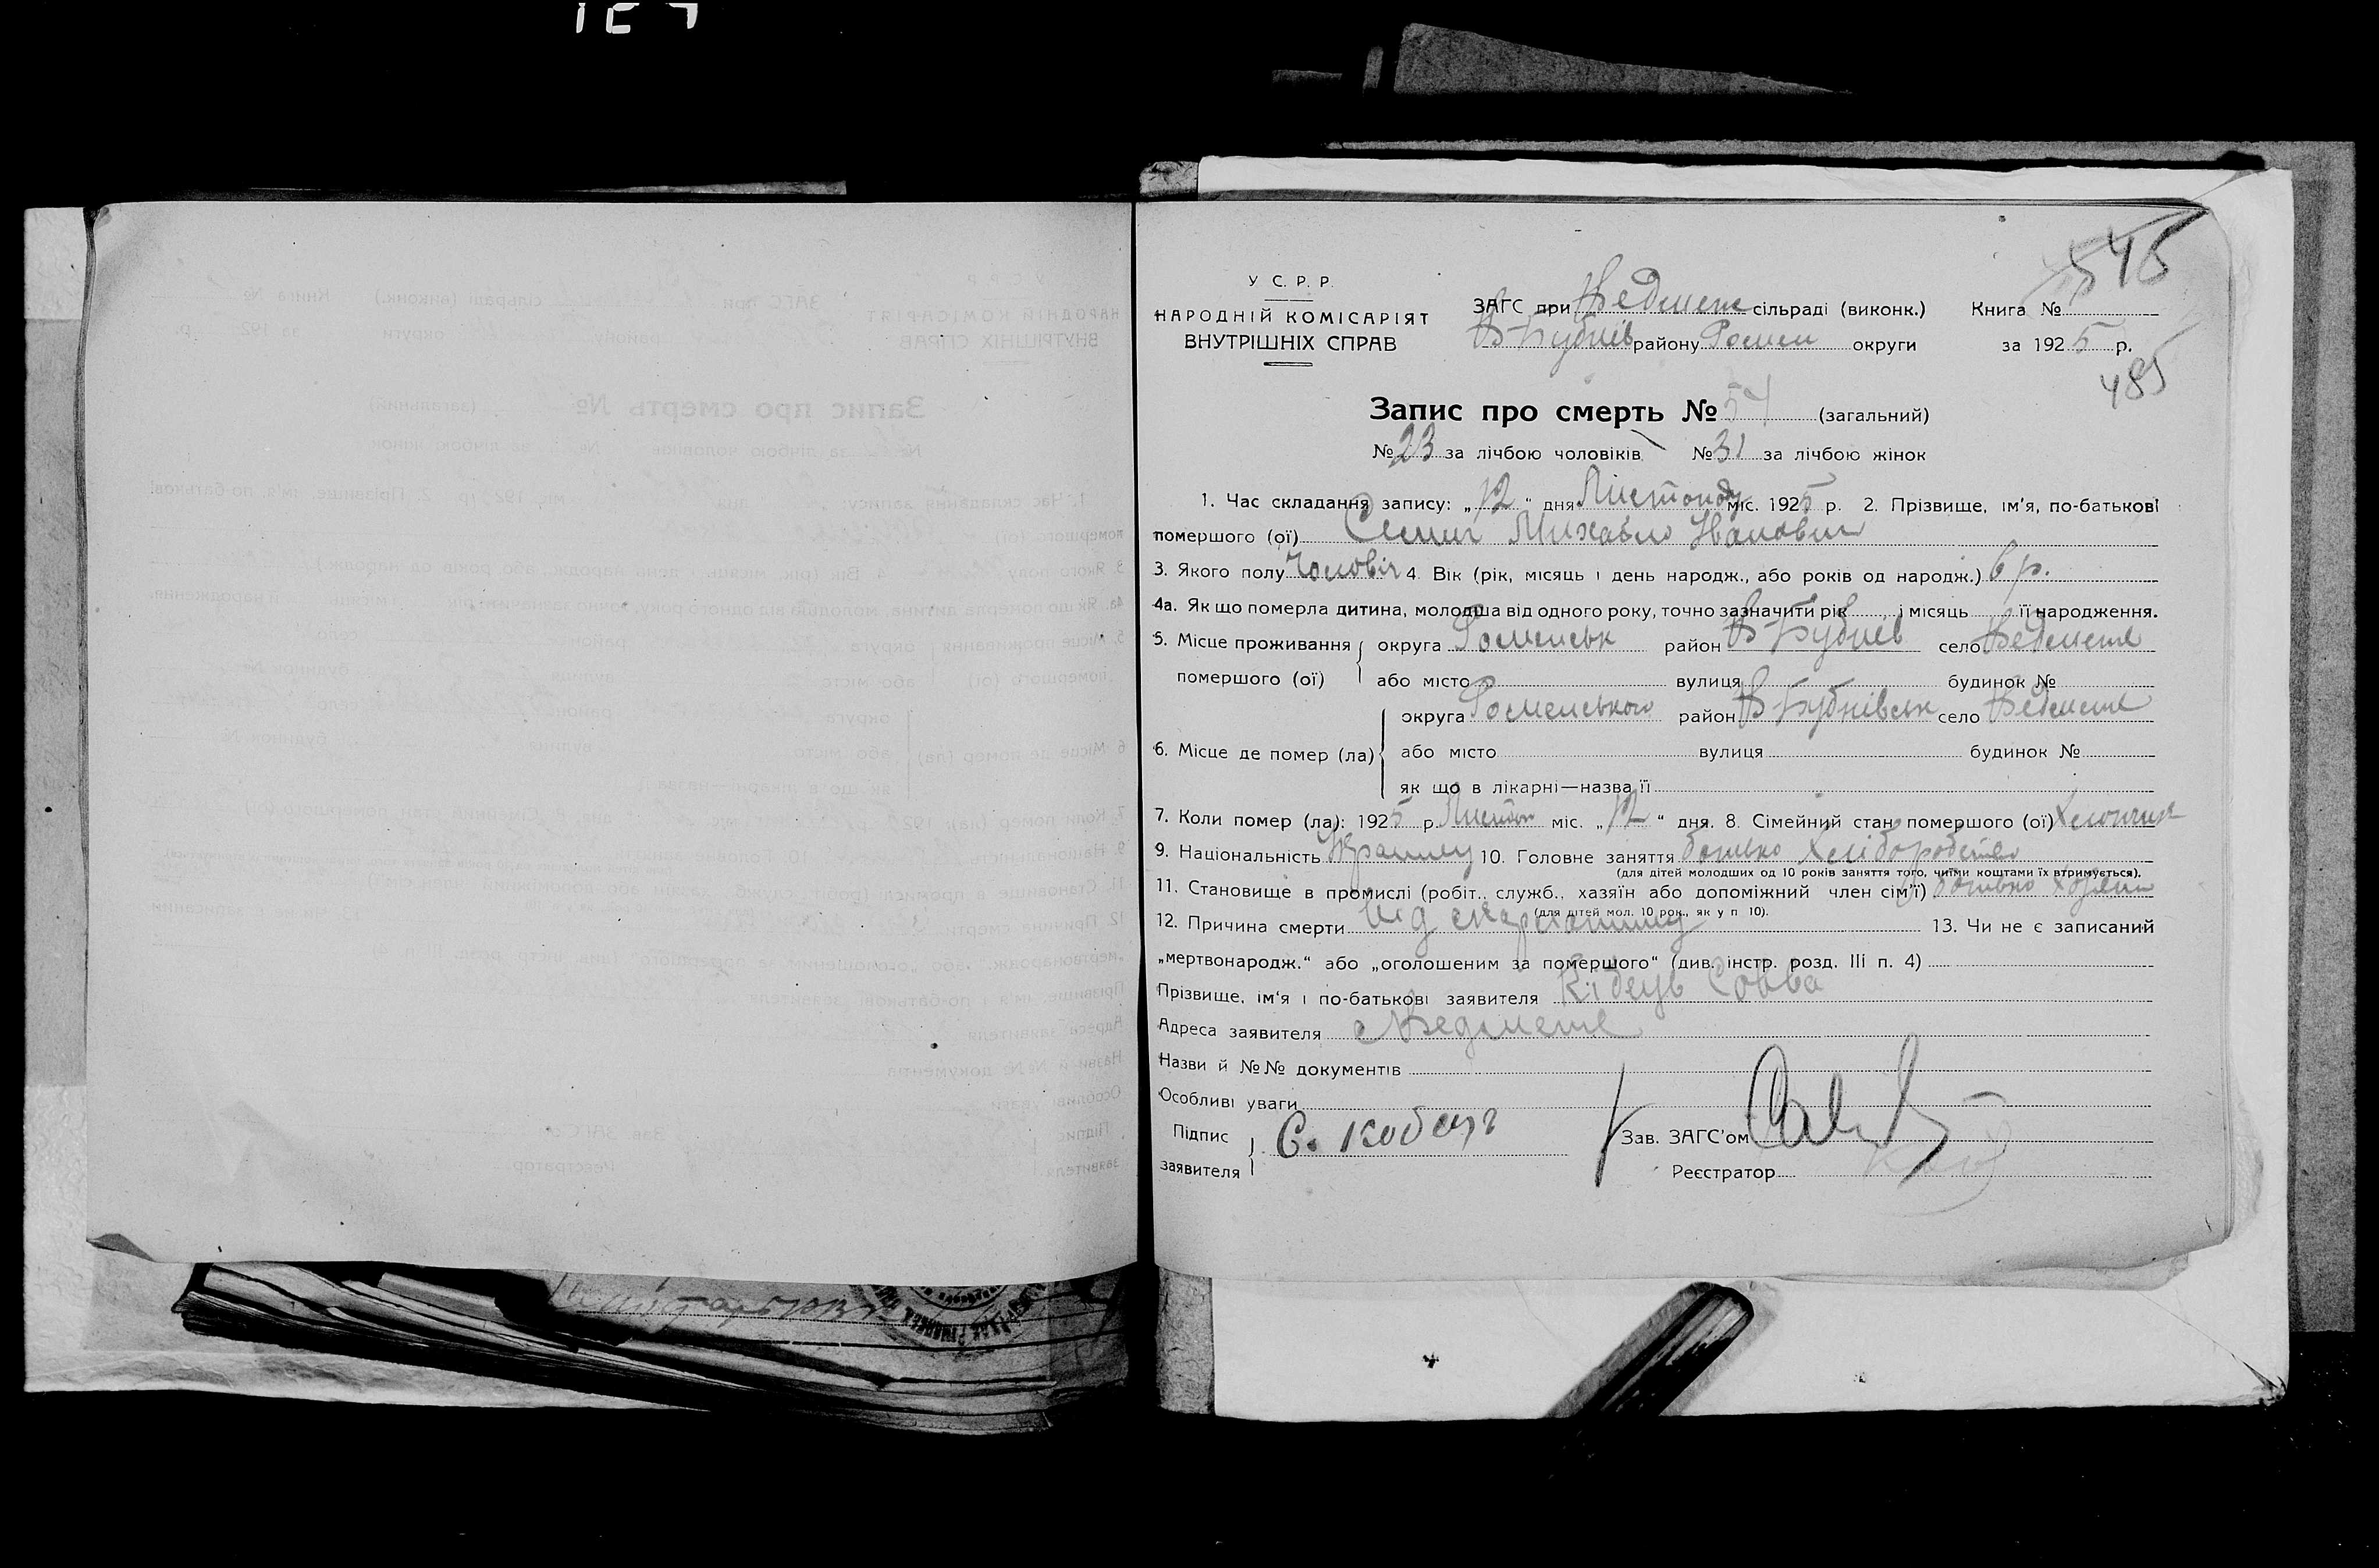 545
У С. Р. Р.
НАРОДНІЙ КОМІСАРІЯТ
ВНУТРІШНІХ СПРАВ
ЗАГС при Ведмеж сільраді (виконк.) Книга №
В-Бубнів району Ромен округи за 1925 р.
485
Запис про смерть № 54 (загальний)
№ 23 за лічбою чоловіків № 31 за лічбою жінок
1. Час складання запису: „12“ дня Листопаду міс. 1925 р. 2. Прізвище, ім'я, по-батькові
помершого (ої) Михайло Іванович
3. Якого полу Чоловіч 4. Вік (рік, місяць і день народж., або років од народж.) 6 р.
4а. Як що померла дитина, молодша від одного року, точно зазначити рік і місяць її народження.
5. Місце проживання округа Роменськ район В-Бубнів село Ведмеже
помершого (ої) або місто вулиця будинок №
округа Роменського район В Бубнівськ село Ведмеже
6. Місце де помер (ла) або місто вулиця будинок №
як що в лікарні—назва її
7. Коли помер (ла): 1925 р. Листоп міс. „12“ дня. 8. Сімейний стан помершого (ої) Хлопчик
9. Національність 10. Головне заняття батько Хліборобство
(для дітей молодших од 10 років заняття того, чиїми коштами їх втримується).
11. Становище в промислі (робіт., служб., хазяїн або допоміжний член сім'ї) батько Хозяин
(для дітей мол. 10 рок., як у п 10).
12. Причина смерти Від скарлатини 13. Чи не є записаний
„мертвонародж.“ або „оголошеним за помершого“ (див. інстр. розд. III п. 4)
Прізвище, ім'я і по-батькові заявителя Савва
Адреса заявителя с Ведмеже
Назви й №№ документів
Особливі уваги
Підпис заявителя С. Кобець Зав. ЗАГС'ом
Реєстратор